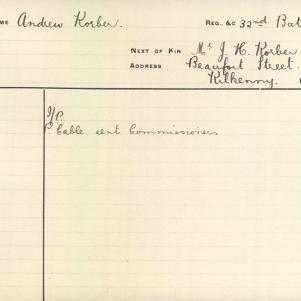 ME Andrew Korber. REG. &C 32nd Bat
NEXT OF KIN Mr J. H. Korber
ADDRESS Beaufort Street.
Kilkenny.
I/P.
P. Cable sent Commissioners